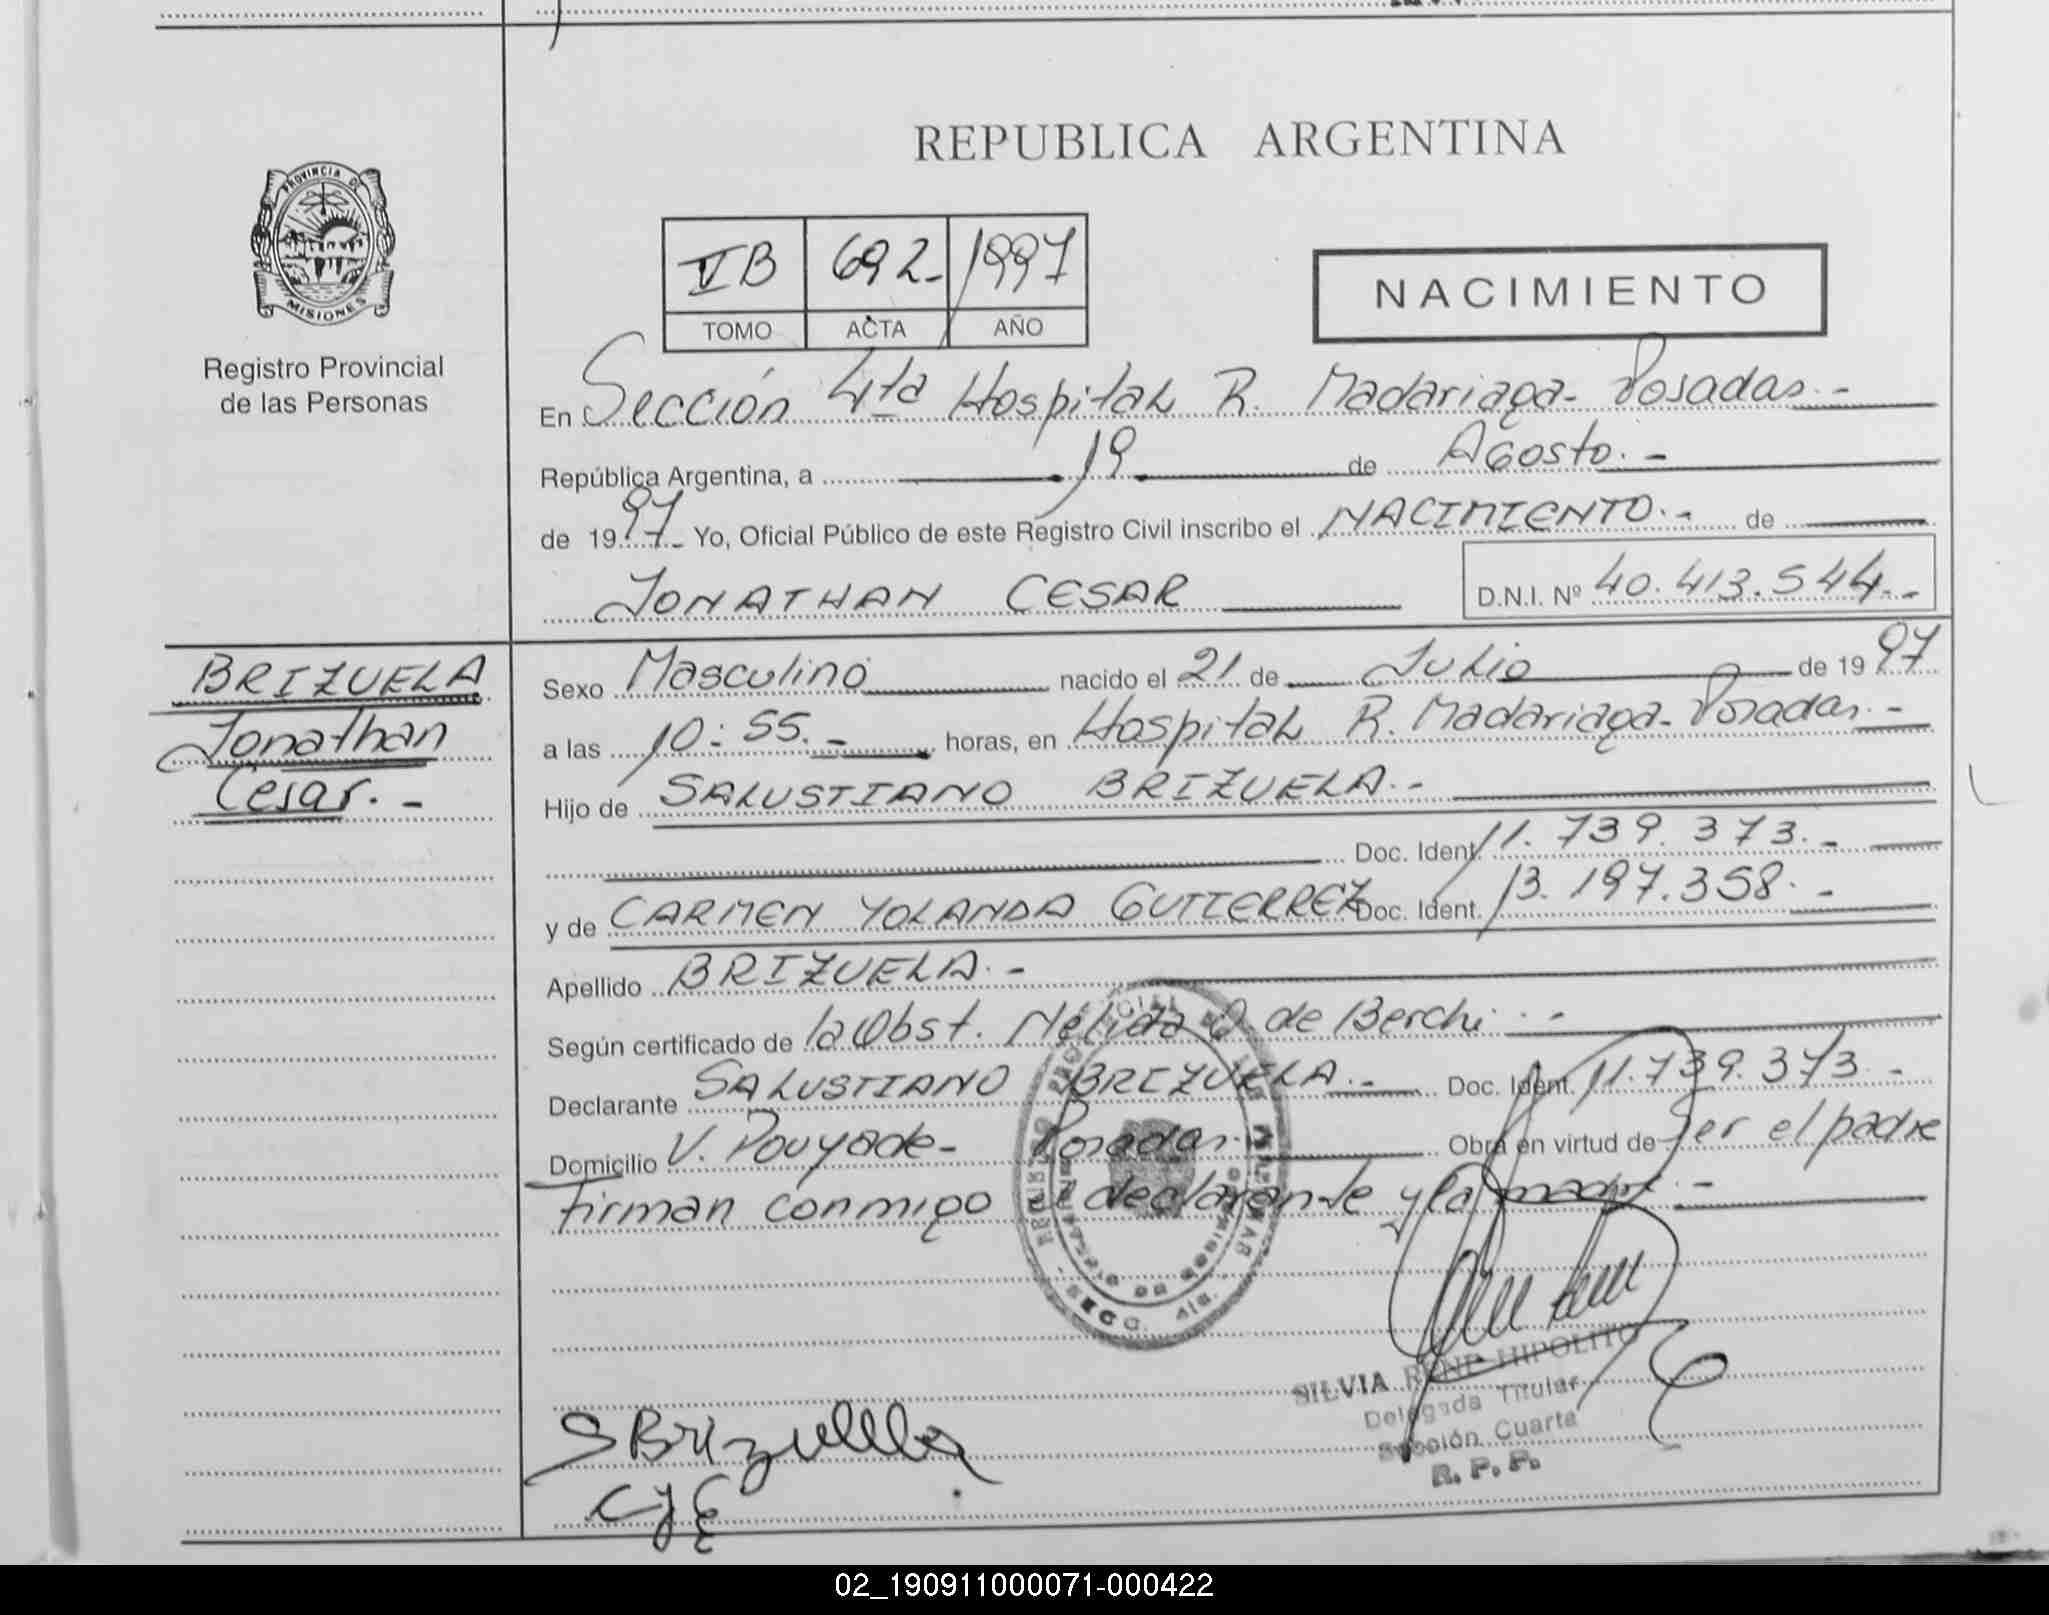 REPUBLICA ARGENTINA
PROVINCIA DE
MISIONES
Registro Provincial
de las Personas
VB 692.- 1997
TOMO ACTA AÑO
NACIMIENTO
En Sección 4ta Hospital R. Madariaga- Posadas.-
República Argentina, a 19 de Agosto.-
de 1997.- Yo, Oficial Público de este Registro Civil inscribo el NACIMIENTO.- de
JONATHAN CESAR D.N.I. Nº 40.413.544.-
BRIZUELA
Jonathan
Cesar.-
Sexo Masculino nacido el 21 de Julio de 1997
a las 10:55.- horas, en Hospital R. Madariaga- Posadas.-
Hijo de SALUSTIANO BRIZUELA.-
Doc. Ident. 11.739.373.-
y de CARMEN YOLANDA GUTIERREZ Doc. Ident. 13.197.358.-
Apellido BRIZUELA.-
Según certificado de la Obst. Nélida de Berchi.-
Declarante SALUSTIANO BRIZUELA.- Doc. Ident. 11.739.373.-
Domicilio V. Pouyade- Posadas.- Obra en virtud de ser el padre
firman conmigo el declarante y la madre.-
SILVIA RENE HIPOLITO
Delegada Titular
Sección Cuarta
R. P. P.
S Brizuela
02_190911000071-000422